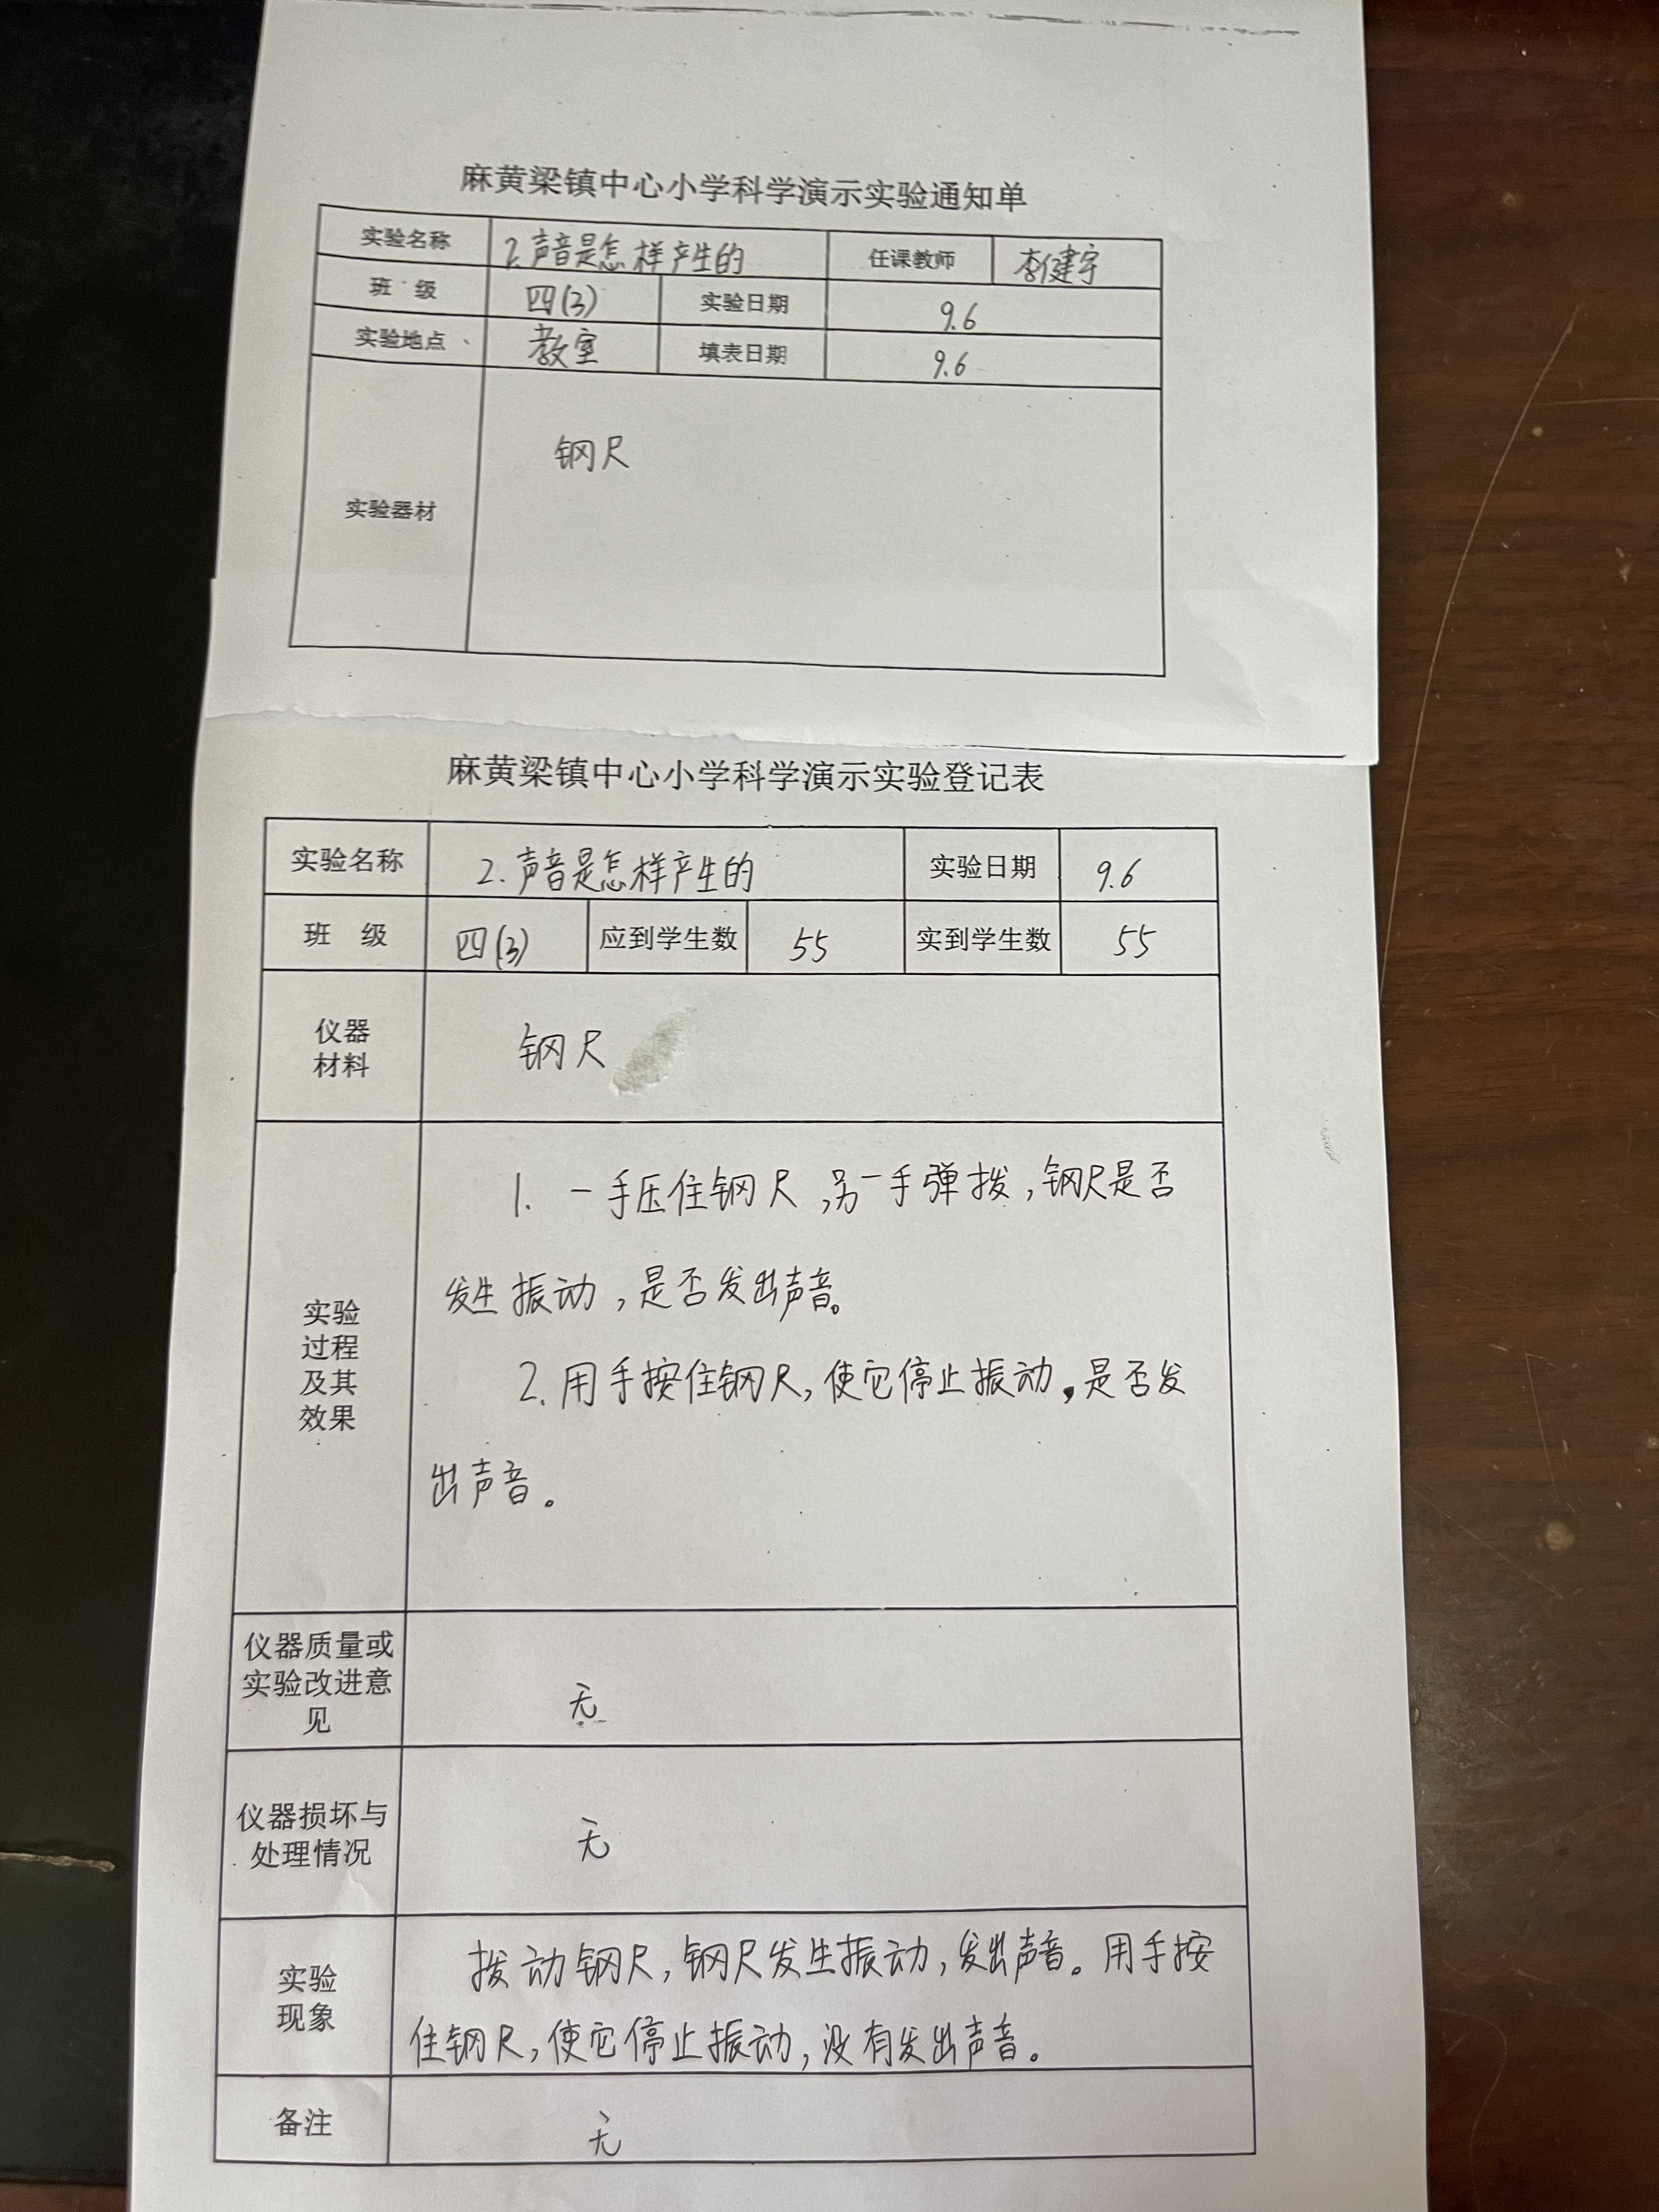 麻黄梁镇中心小学科学演示实验通知单
实验名称 2.声音是怎样产生的 任课教师 李健宇
班 级 四(3) 实验日期 9.6
实验地点 教室 填表日期 9.6
实验器材 钢尺
麻黄梁镇中心小学科学演示实验登记表
实验名称 2.声音是怎样产生的 实验日期 9.6
班 级 四(3) 应到学生数 55 实到学生数 55
仪器
材料
钢尺
实验
过程
及其
效果
1. 一手压住钢尺,另一手弹拨,钢尺是否
发生振动,是否发出声音。
2.用手按住钢尺,使它停止振动,是否发
出声音。
仪器质量或
实验改进意
见
无
仪器损坏与
处理情况
无
实验
现象
拨动钢尺,钢尺发生振动,发出声音。用手按
住钢尺,使它停止振动,没有发出声音。
备注 无